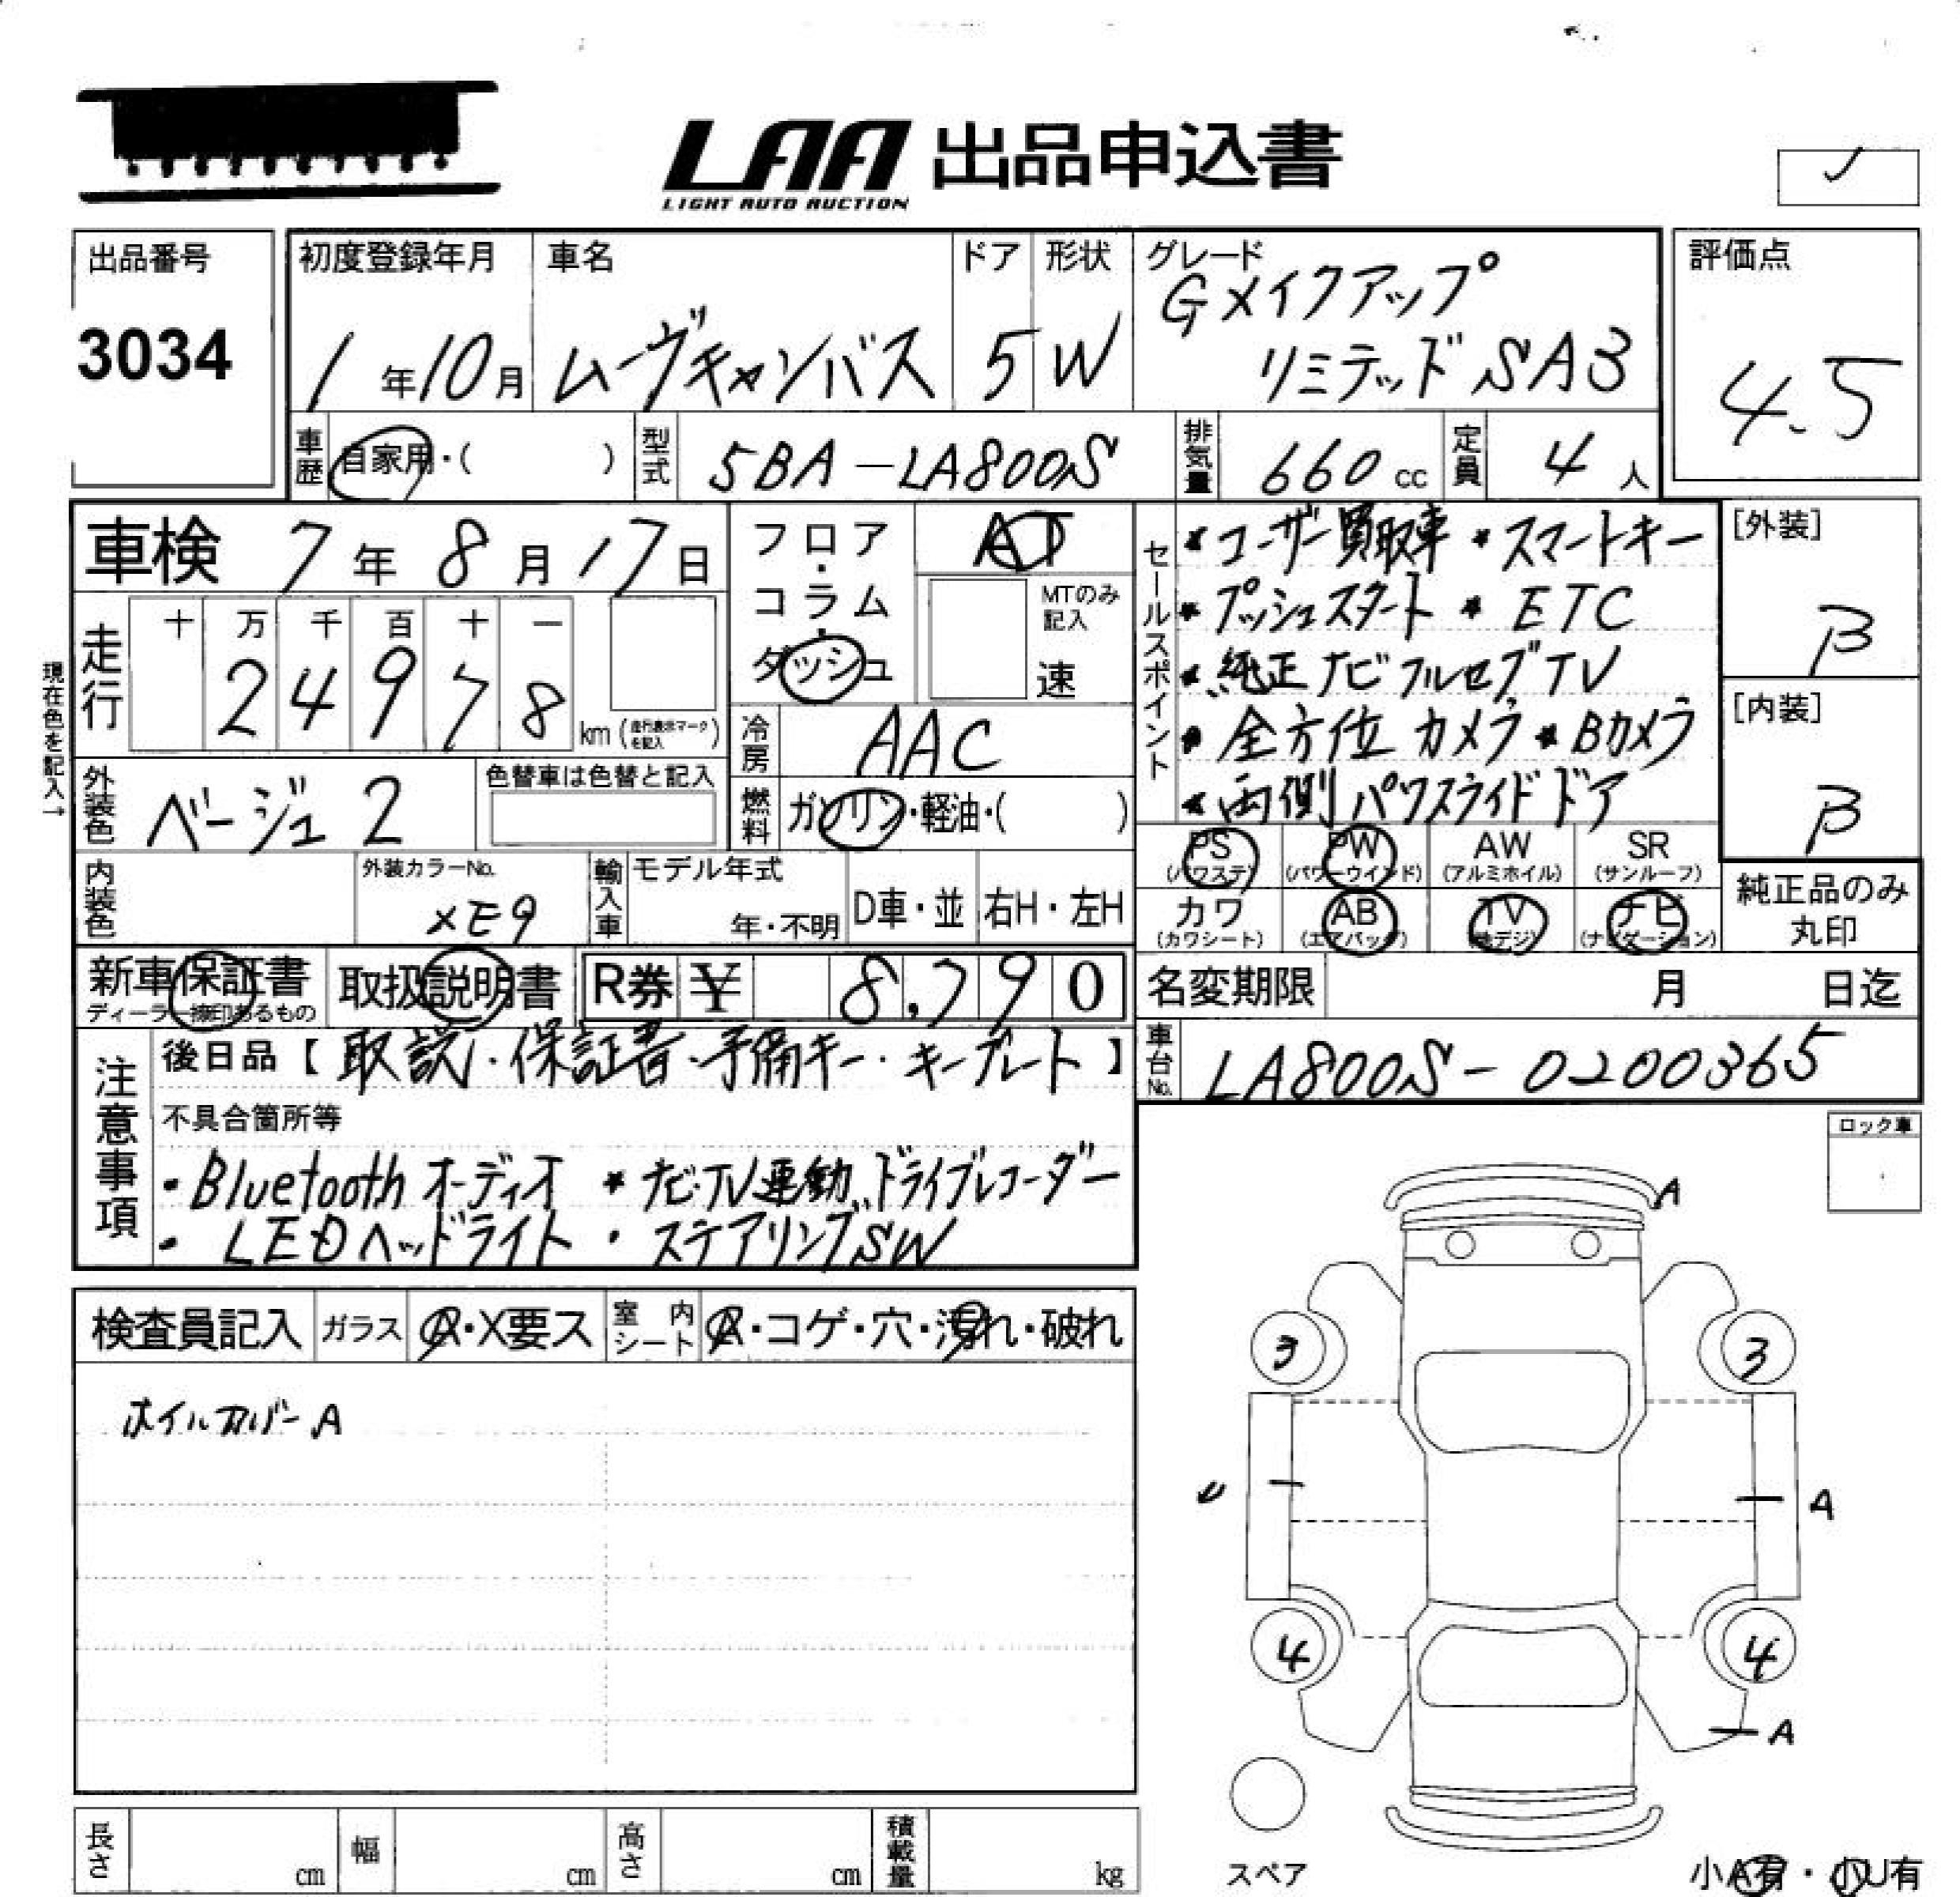 LAA 出品申込書
LIGHT AUTO AUCTION
出品番号
3034
初度登録年月
1年10月
車名
ムーヴキャンバス
ドア
5
形状
W
グレード
Gメイクアップ
リミテッド SA3
評価点
4.5
車歴 自家用・( )
型式 5BA-LA800S
排気量 660 cc
定員 4 人
車検 7年 8月 17日
フロア・コラム・ダッシュ
AT
MTのみ記入
速
走行 十 万 千 百 十 一
24978 km (走行表示マークを記入)
現在色を記入→
冷房 AAC
外装色 ベージュ2
色替車は色替と記入
燃料 ガソリン・軽油・( )
内装色
外装カラーNo.
XE9
輸入車 モデル年式
年・不明
D車・並 右H・左H
セールスポイント
* ユーザー買取車 * スマートキー
* プッシュスタート * ETC
* 純正ナビフルセグTV
* 全方位カメラ * Bカメラ
* 両側パワスライドドア
[外装]
B
[内装]
B
PS (パワステ) PW (パワーウインド) AW (アルミホイル) SR (サンルーフ)
カワ (カワシート) AB (エアバッグ) TV (地デジ) ナビ (ナビゲーション)
純正品のみ
丸印
新車保証書
ディーラー捺印あるもの
取扱説明書
R券 ¥ 8,790
名変期限 月 日迄
車台No. LA800S-0200365
注意事項
後日品【取説・保証書・予備キー・キープレート】
不具合箇所等
・Bluetoothオーディオ * ナビ・TV連動ドライブレコーダー
・LEDヘッドライト ・ステアリングSW
ロック車
検査員記入 ガラス A・X要ス 室内シート A・コゲ・穴・汚れ・破れ
ホイルカバーA
A
3
3
U
A
4
4
A
スペア
小A有・小U有
長さ cm 幅 cm 高さ cm 積載量 kg